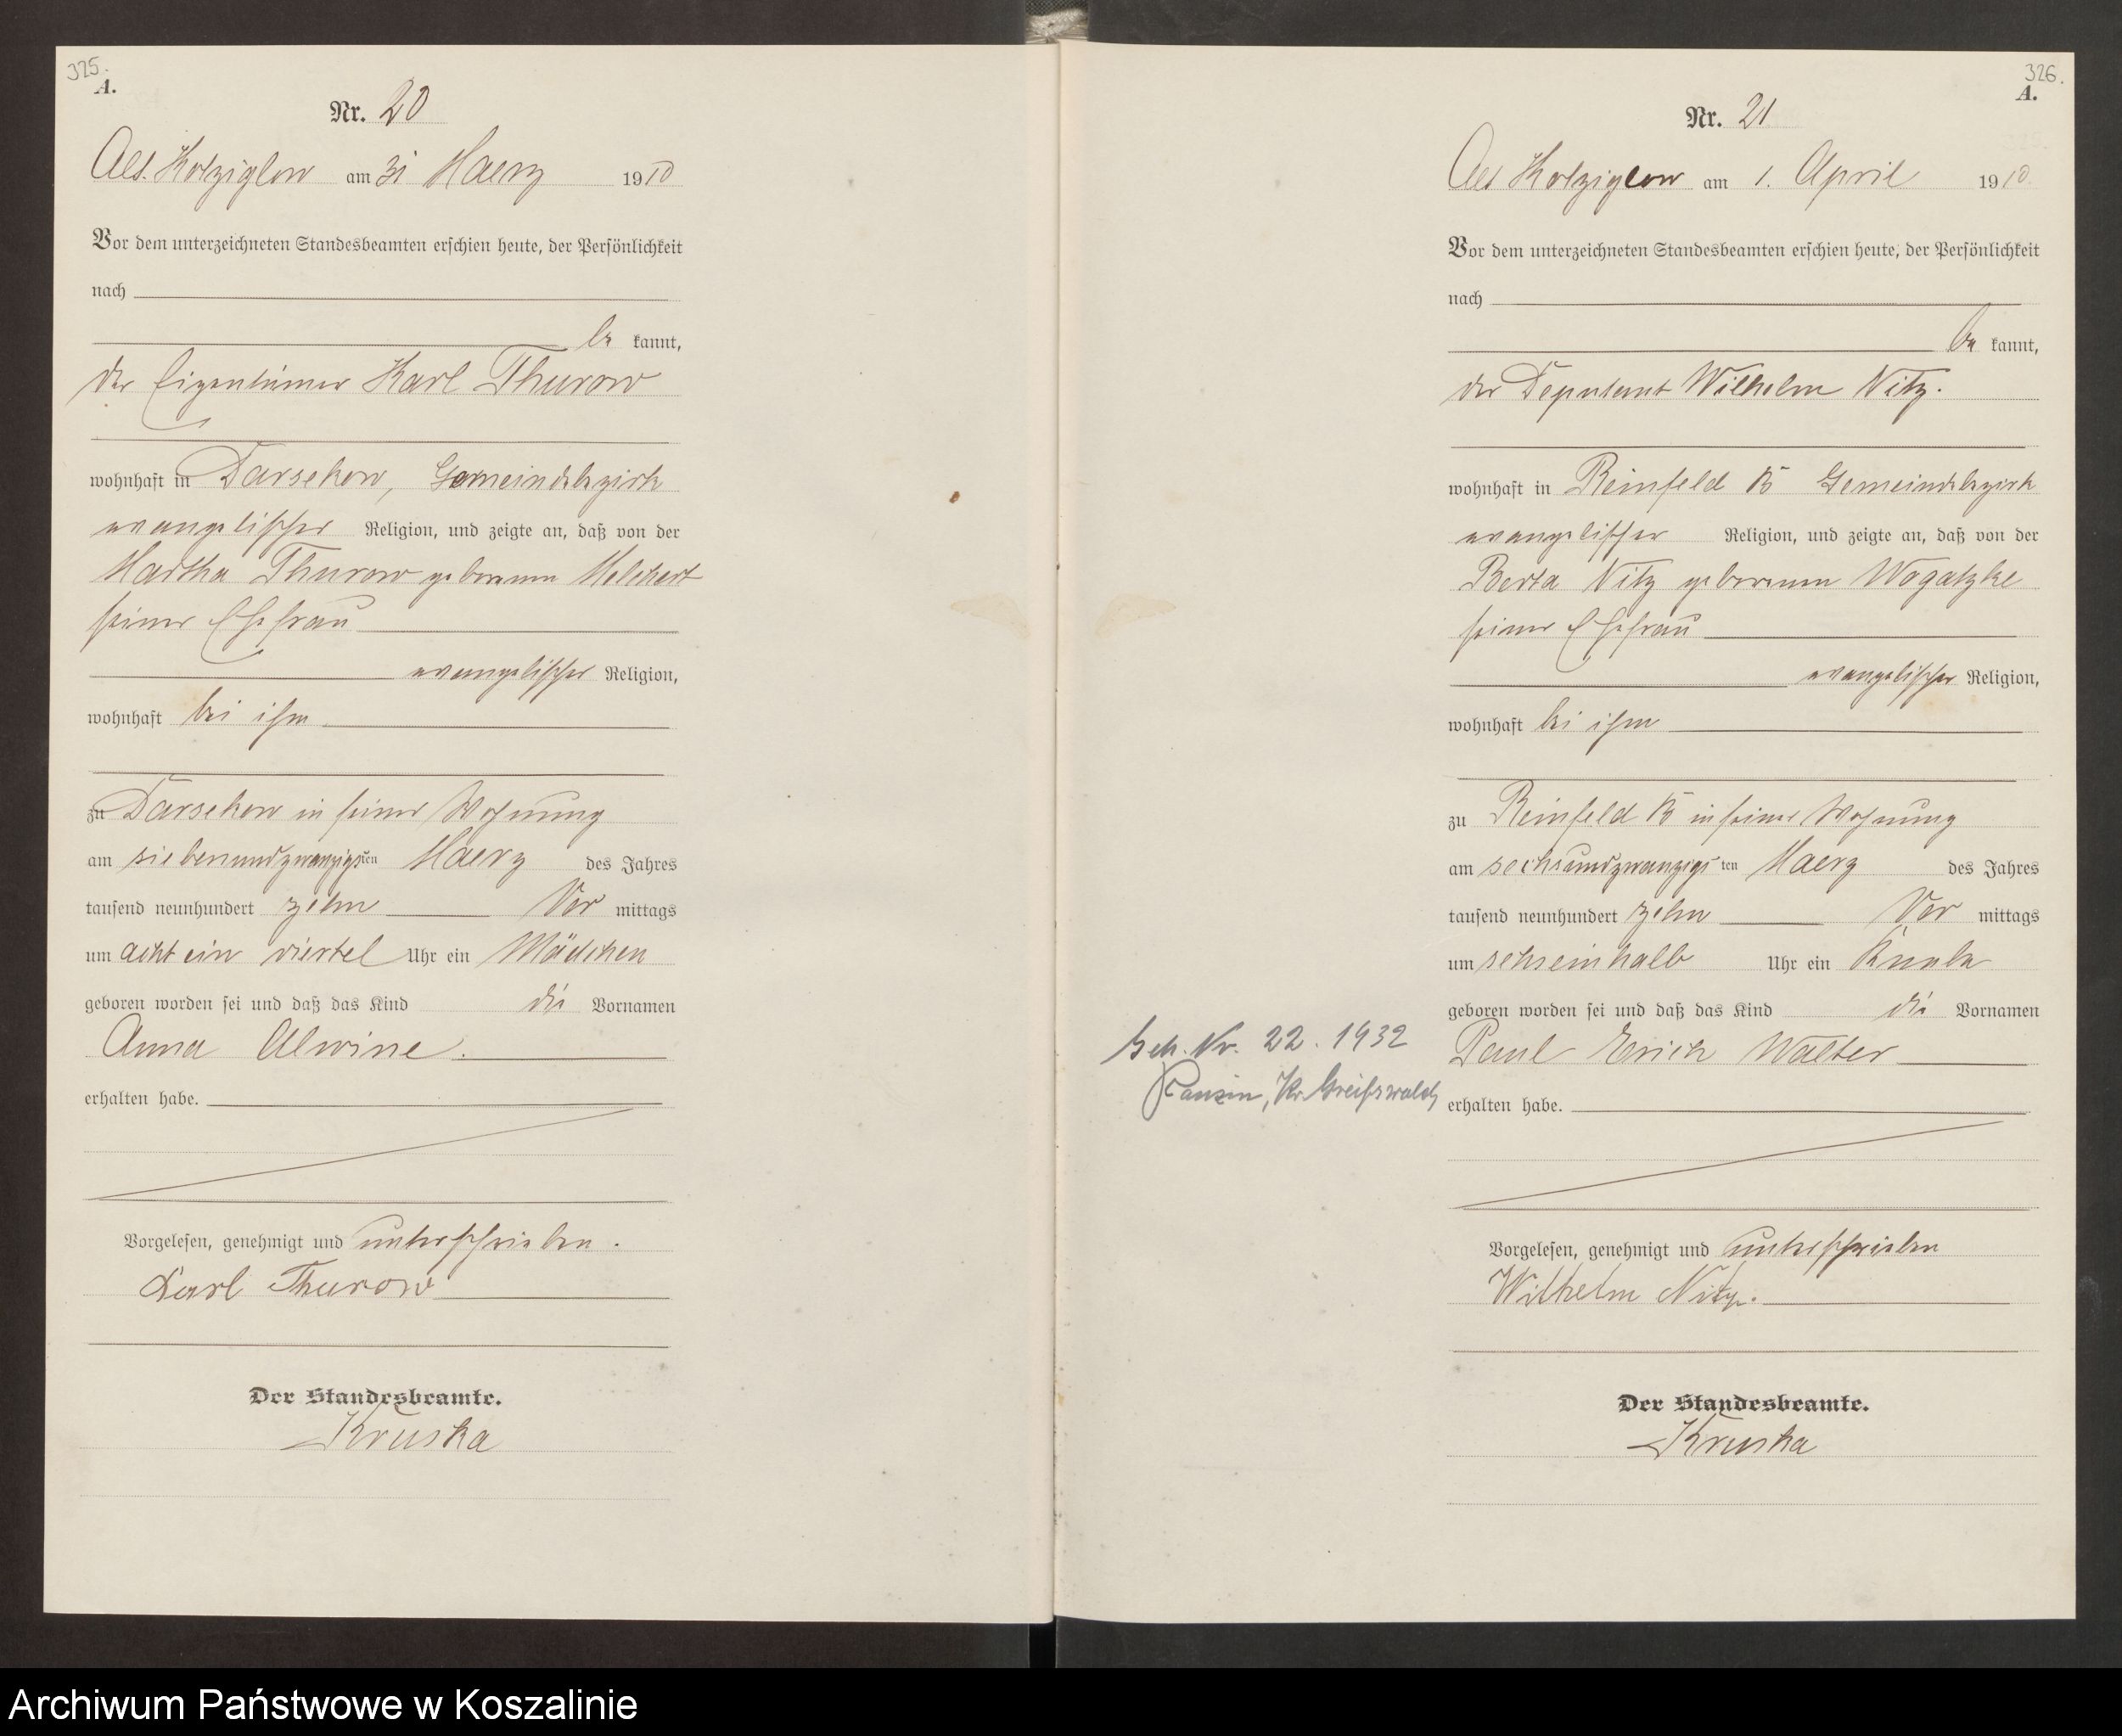 325.
A.
Nr. 20
Alt. Kolziglow am 31 Maerz 1910
Vor dem unterzeichneten Standesbeamten erschien heute, der Persönlichkeit
nach
be kannt,
der Eigentümer Karl Thurow
wohnhaft in Darsekow, Gemeindebezirk
evangelischer Religion, und zeigte an, daß von der
Martha Thurow geborenen Melchert
seiner Ehefrau
evangelischer Religion,
wohnhaft bei ihm
zu Darsekow in seiner Wohnung
am siebenundzwanzigsten Maerz des Jahres
tausend neunhundert zehn Vor mittags
um acht ein viertel Uhr ein Mädchen
geboren worden sei und daß das Kind die Vornamen
Anna Alwine.
erhalten habe.
Vorgelesen, genehmigt und unterschrieben.
Karl Thurow
Der Standesbeamte.
Kruska
326.
A.
Nr. 21
Alt Kolziglow am 1. April 1910.
Vor dem unterzeichneten Standesbeamten erschien heute, der Persönlichkeit
nach
be kannt,
der Deputant Wilhelm Nitz.
wohnhaft in Reinfeld B Gemeindebezirk
evangelischer Religion, und zeigte an, daß von der
Berta Nitz geborenen Wogatzke
seiner Ehefrau
evangelischer Religion,
wohnhaft bei ihm
zu Reinfeld B in seiner Wohnung
am sechsundzwanzigsten Maerz des Jahres
tausend neunhundert zehn Vor mittags
um sechseinhalb Uhr ein Knabe
geboren worden sei und daß das Kind die Vornamen
Paul Erich Walter
erhalten habe.
Geh. Nr. 22. 1932
Kr. Greifswald
Vorgelesen, genehmigt und unterschrieben
Wilhelm Nitz.
Der Standesbeamte.
Kruska
Archiwum Państwowe w Koszalinie